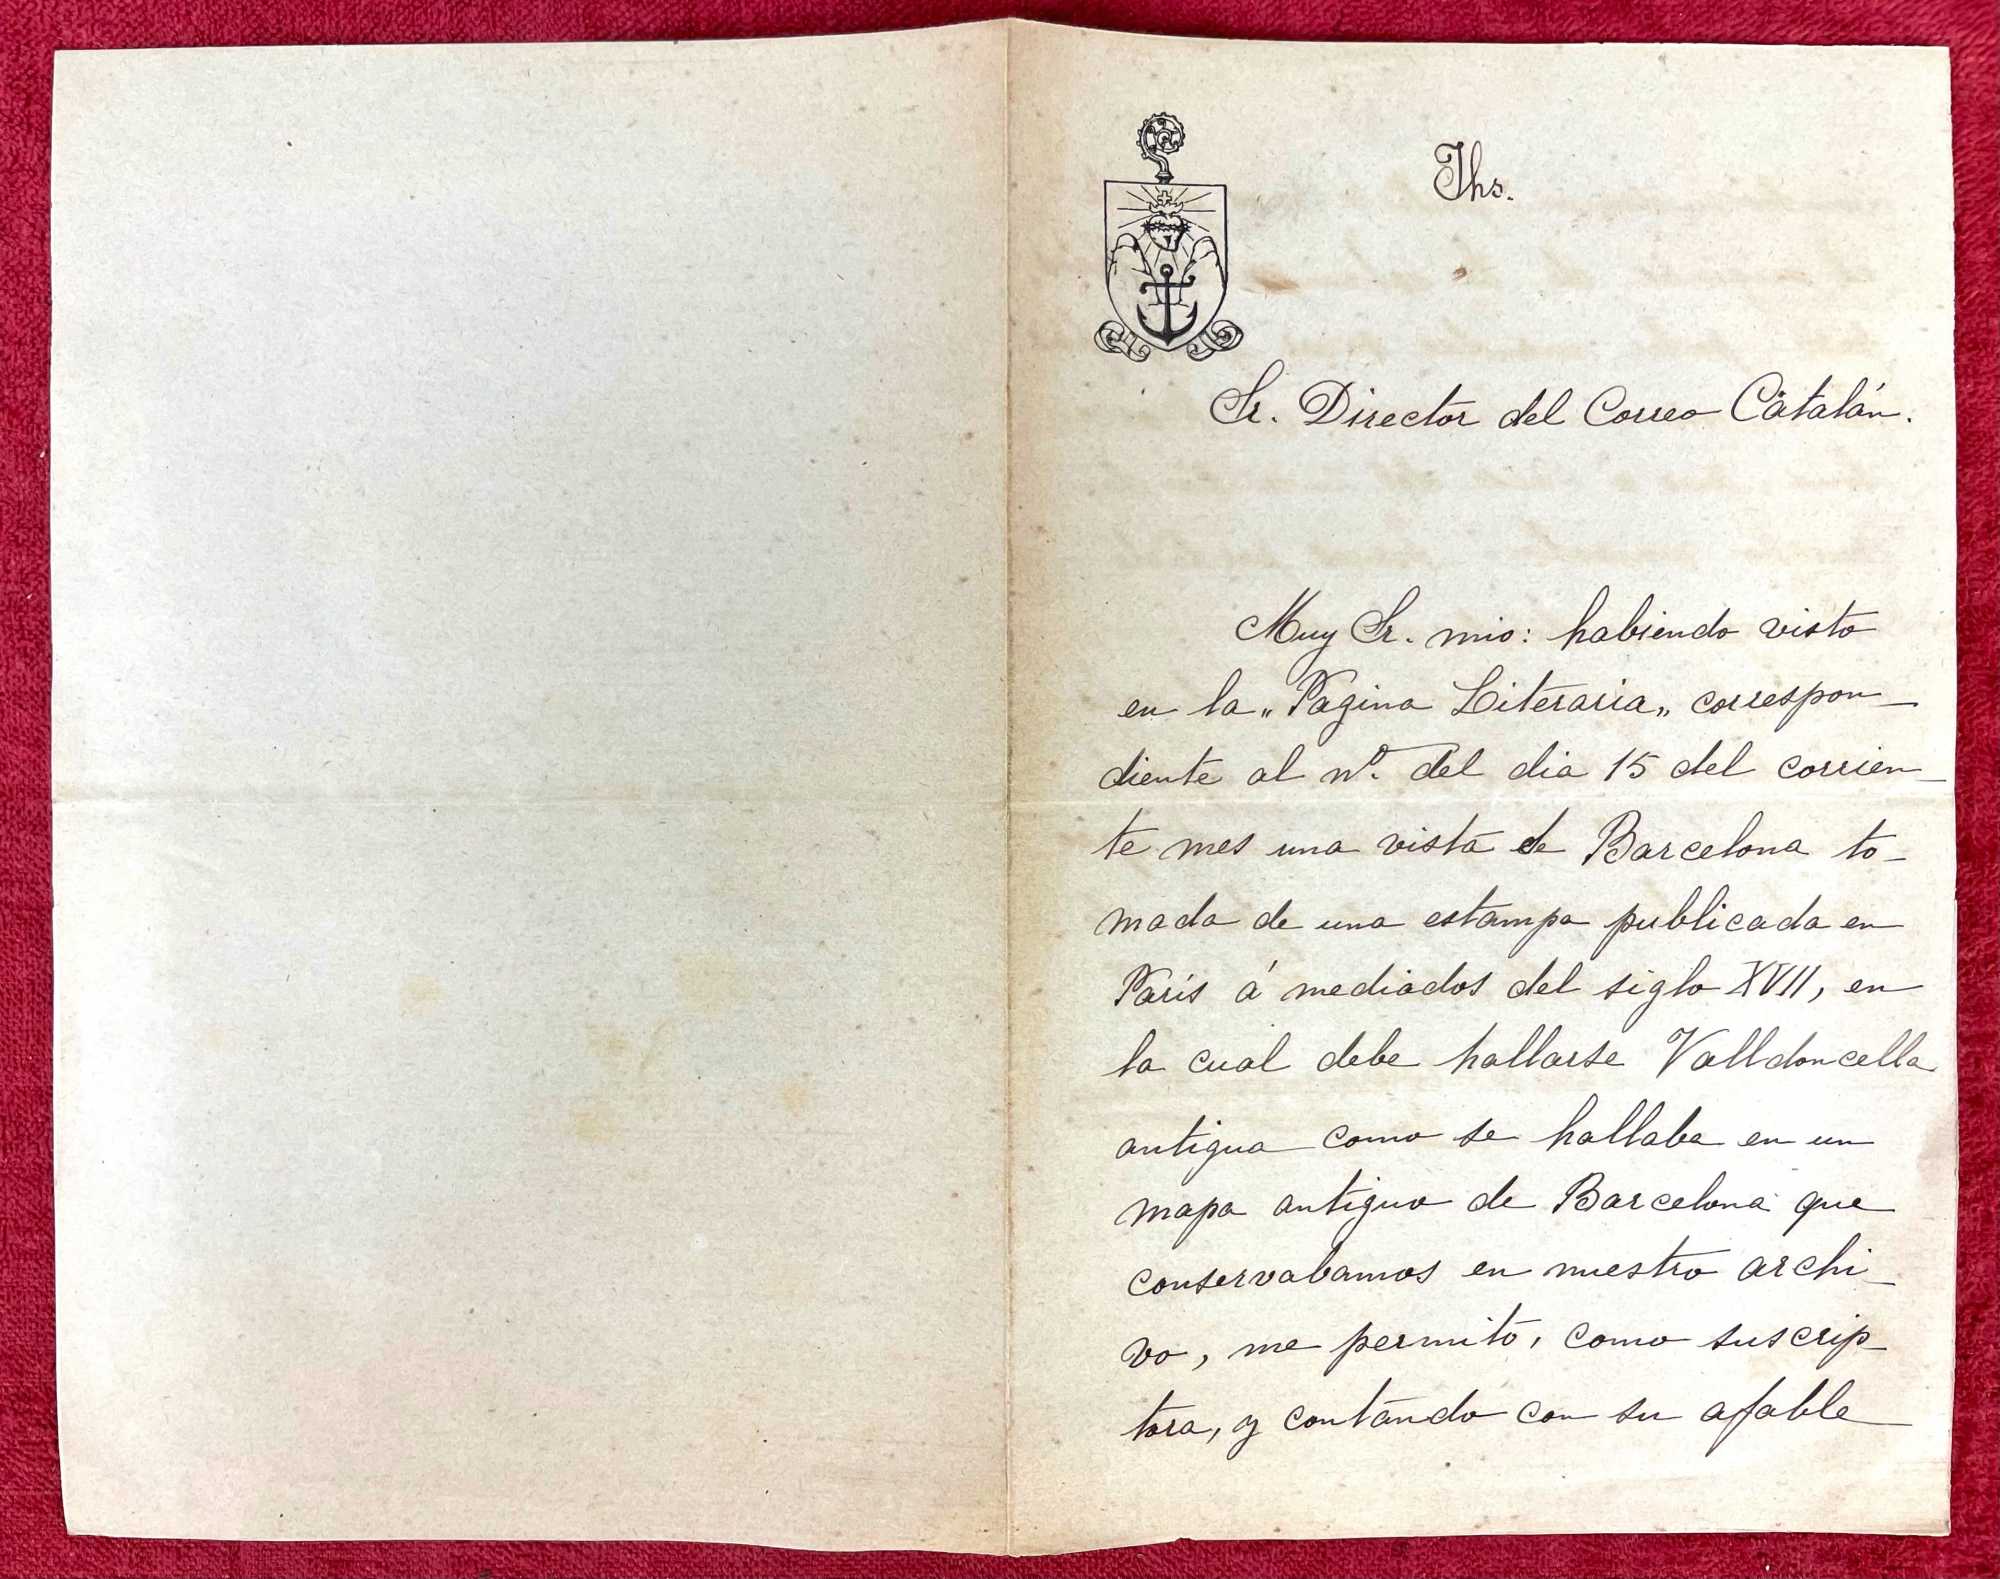 Jhs.
Sr. Director del Correo Catalán.
Muy Sr. mio: habiendo visto
en la „Pagina Literaria„ correspon_
diente al nº. del dia 15 del corrien_
te mes una vista de Barcelona to_
mada de una estampa publicada en
Paris á mediados del siglo XVII, en
la cual debe hallarse Valldoncella
antigua como se hallaba en un
mapa antiguo de Barcelona que
conservabamos en nuestro archi_
vo, me permito, como suscrip_
tora, y contando con su afable